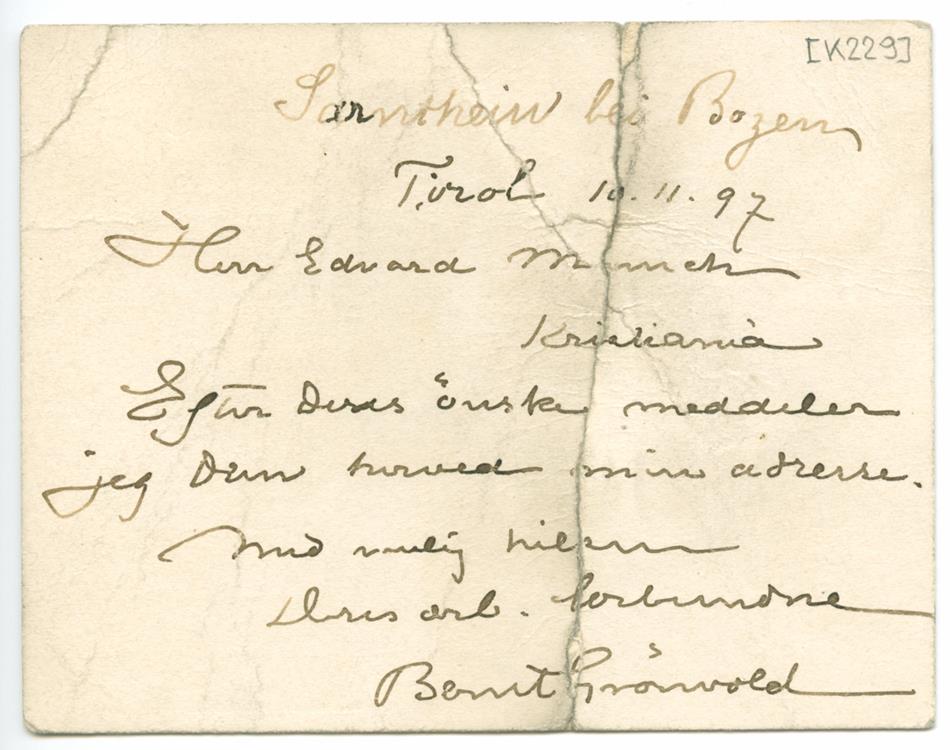 [K229]
Sarnthein bei Bozen
Tirol 10.11.97
Herr Edvard Munch
Kristiania
Efter Deres önske meddeler
jeg Dem herved min adresse.
Med venlig hilsen
Deres ærb. forbundne
Bernt Grönvold